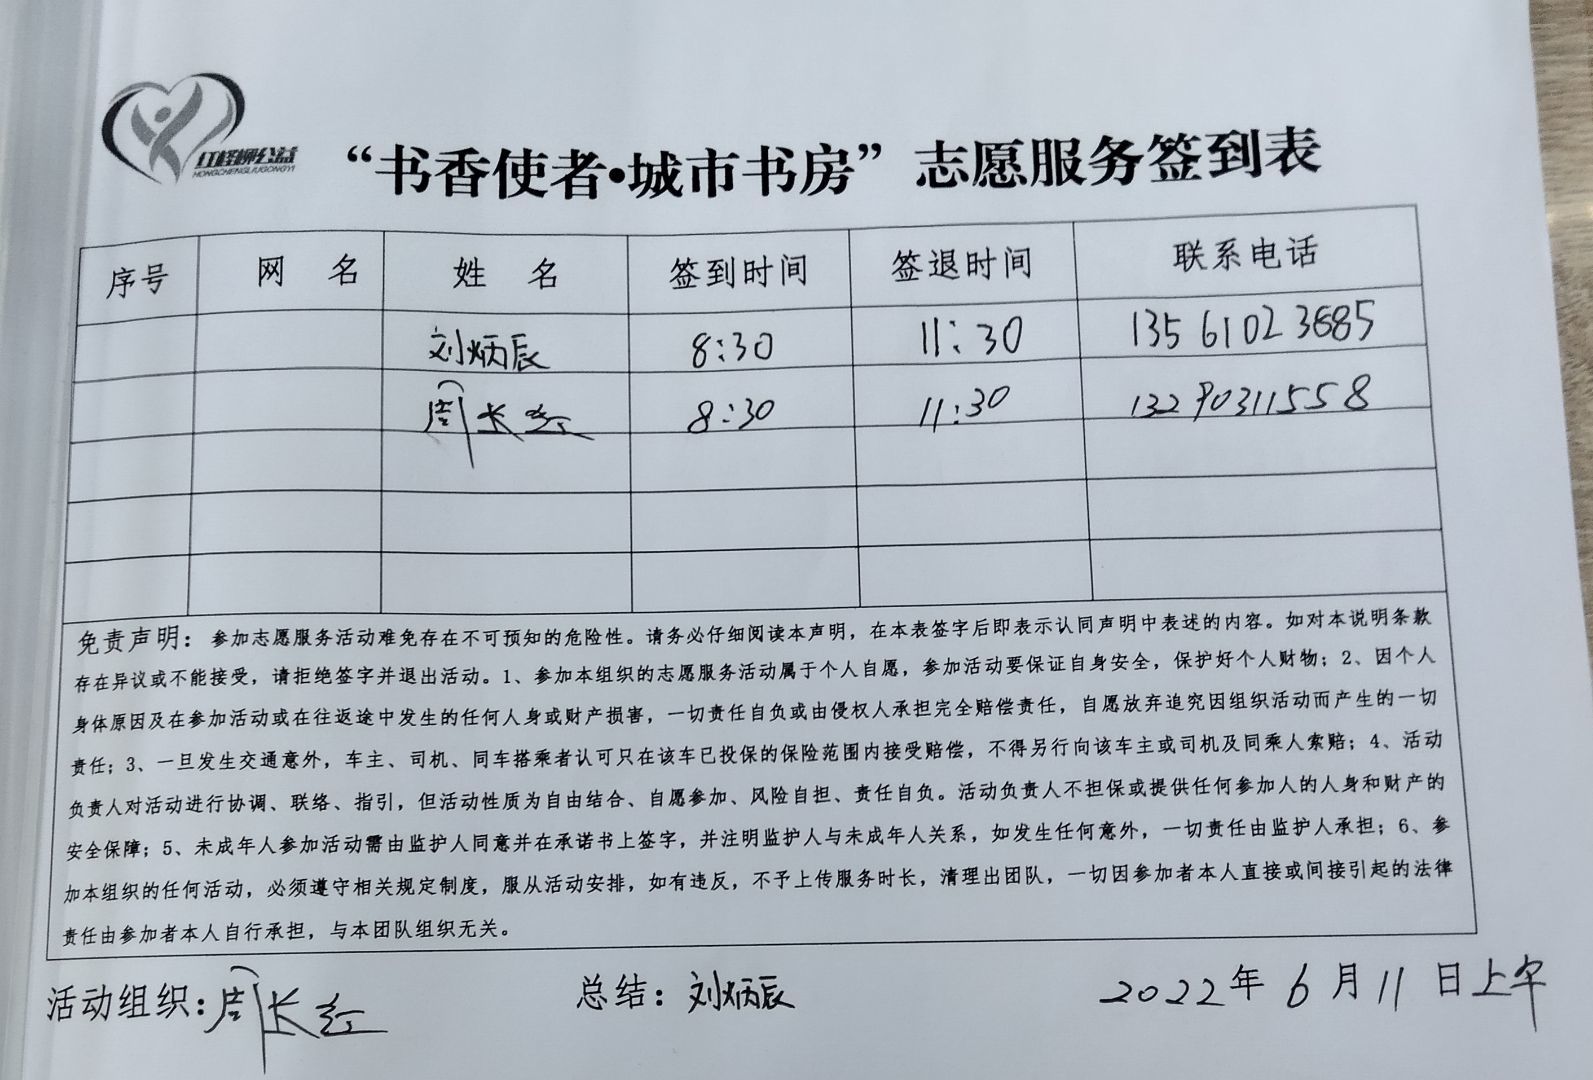 红柽柳公益
HONGCHENGLIUGONGYI
“书香使者•城市书房”志愿服务签到表
序号 网 名 姓 名 签到时间 签退时间 联系电话
刘炳辰 8:30 11:30 13561023685
周长红 8:30 11:30 13290311558
免责声明：参加志愿服务活动难免存在不可预知的危险性。请务必仔细阅读本声明，在本表签字后即表示认同声明中表述的内容。如对本说明条款
存在异议或不能接受，请拒绝签字并退出活动。1、参加本组织的志愿服务活动属于个人自愿，参加活动要保证自身安全，保护好个人财物；2、因个人
身体原因及在参加活动或在往返途中发生的任何人身或财产损害，一切责任自负或由侵权人承担完全赔偿责任，自愿放弃追究因组织活动而产生的一切
责任；3、一旦发生交通意外，车主、司机、同车搭乘者认可只在该车已投保的保险范围内接受赔偿，不得另行向该车主或司机及同乘人索赔；4、活动
负责人对活动进行协调、联络、指引，但活动性质为自由结合、自愿参加、风险自担、责任自负。活动负责人不担保或提供任何参加人的人身和财产的
安全保障；5、未成年人参加活动需由监护人同意并在承诺书上签字，并注明监护人与未成年人关系，如发生任何意外，一切责任由监护人承担；6、参
加本组织的任何活动，必须遵守相关规定制度，服从活动安排，如有违反，不予上传服务时长，清理出团队，一切因参加者本人直接或间接引起的法律
责任由参加者本人自行承担，与本团队组织无关。
活动组织：周长红 总结：刘炳辰 2022年6月11日上午